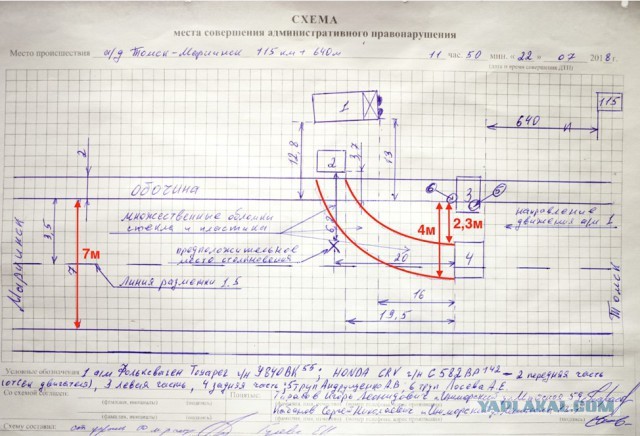 СХЕМА
места совершения административного правонарушения
Место происшествия а/д Томск-Мариинск 115 км + 640 м 11 час. 50 мин. «22» 07 2018 г.
115
1
640
12,8
13
2
3,7
2
обочина
6
3
5
множественные обломки
стекла и пластика
6,2
4м
2,3м
направление
движения а/м 1
3,5
предположительное
место столкновения
4
7м
7
20
Мариинск
Томск
Линия разметки 1.5
16
19,5
Условные обозначения 1 а/м Фольксваген Тоуарег г/н У840ВК 55; HONDA CRV г/н С582ВО 142 – 2 передняя часть
(отсек двигателя), 3 левая часть, 4 задняя часть; 5 труп Андрущенко А.В, 6 труп Лосева А.Е
Со схемой согласен: Понятые:
Схему составил:
YAPLAKAL.COM